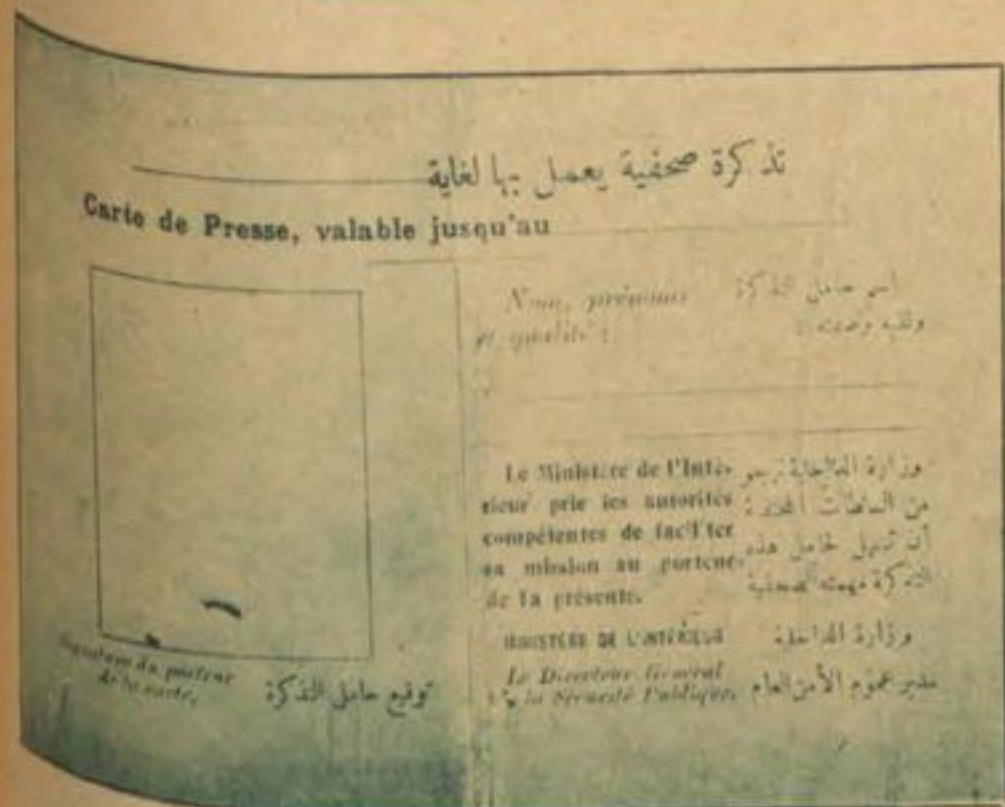 تذكرة صحفية يعمل بها لغاية
Carte de Presse, valable jusqu'au
Nom, prénoms
et qualité :
اسم حامل التذكرة
ولقبه وصفته :
Le Ministère de l'Inté-
rieur prie les autorités
compétentes de faciliter
sa mission au porteur
de la présente.
وزارة الداخلية ترجو
من السلطات
أن تسهل لحامل هذه
التذكرة مهمته الصحفية
MINISTÈRE DE L'INTÉRIEUR
Le Directeur Général
la Sécurité Publique,
وزارة الداخلية
مدير عموم الأمن العام
Signature du porteur
de la carte,
توقيع حامل التذكرة